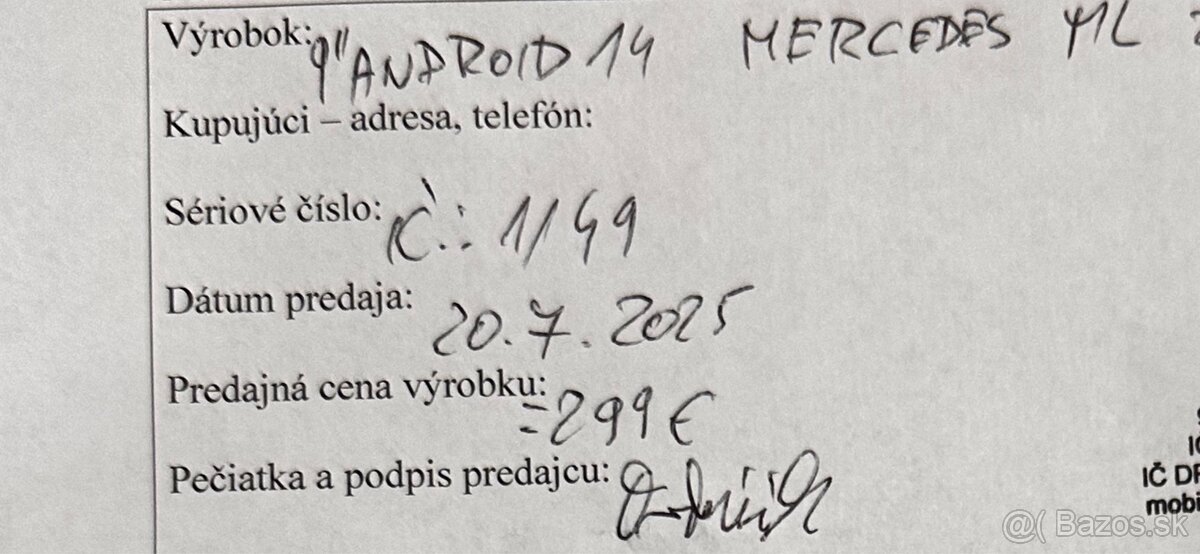 Výrobok: 9" ANDROID 14 MERCEDES ML
Kupujúci – adresa, telefón:
Sériové číslo: Č.: 1/49
Dátum predaja: 20.7.2025
Predajná cena výrobku: =299€
Pečiatka a podpis predajcu:
IČ
mobi
@( Bazos.sk